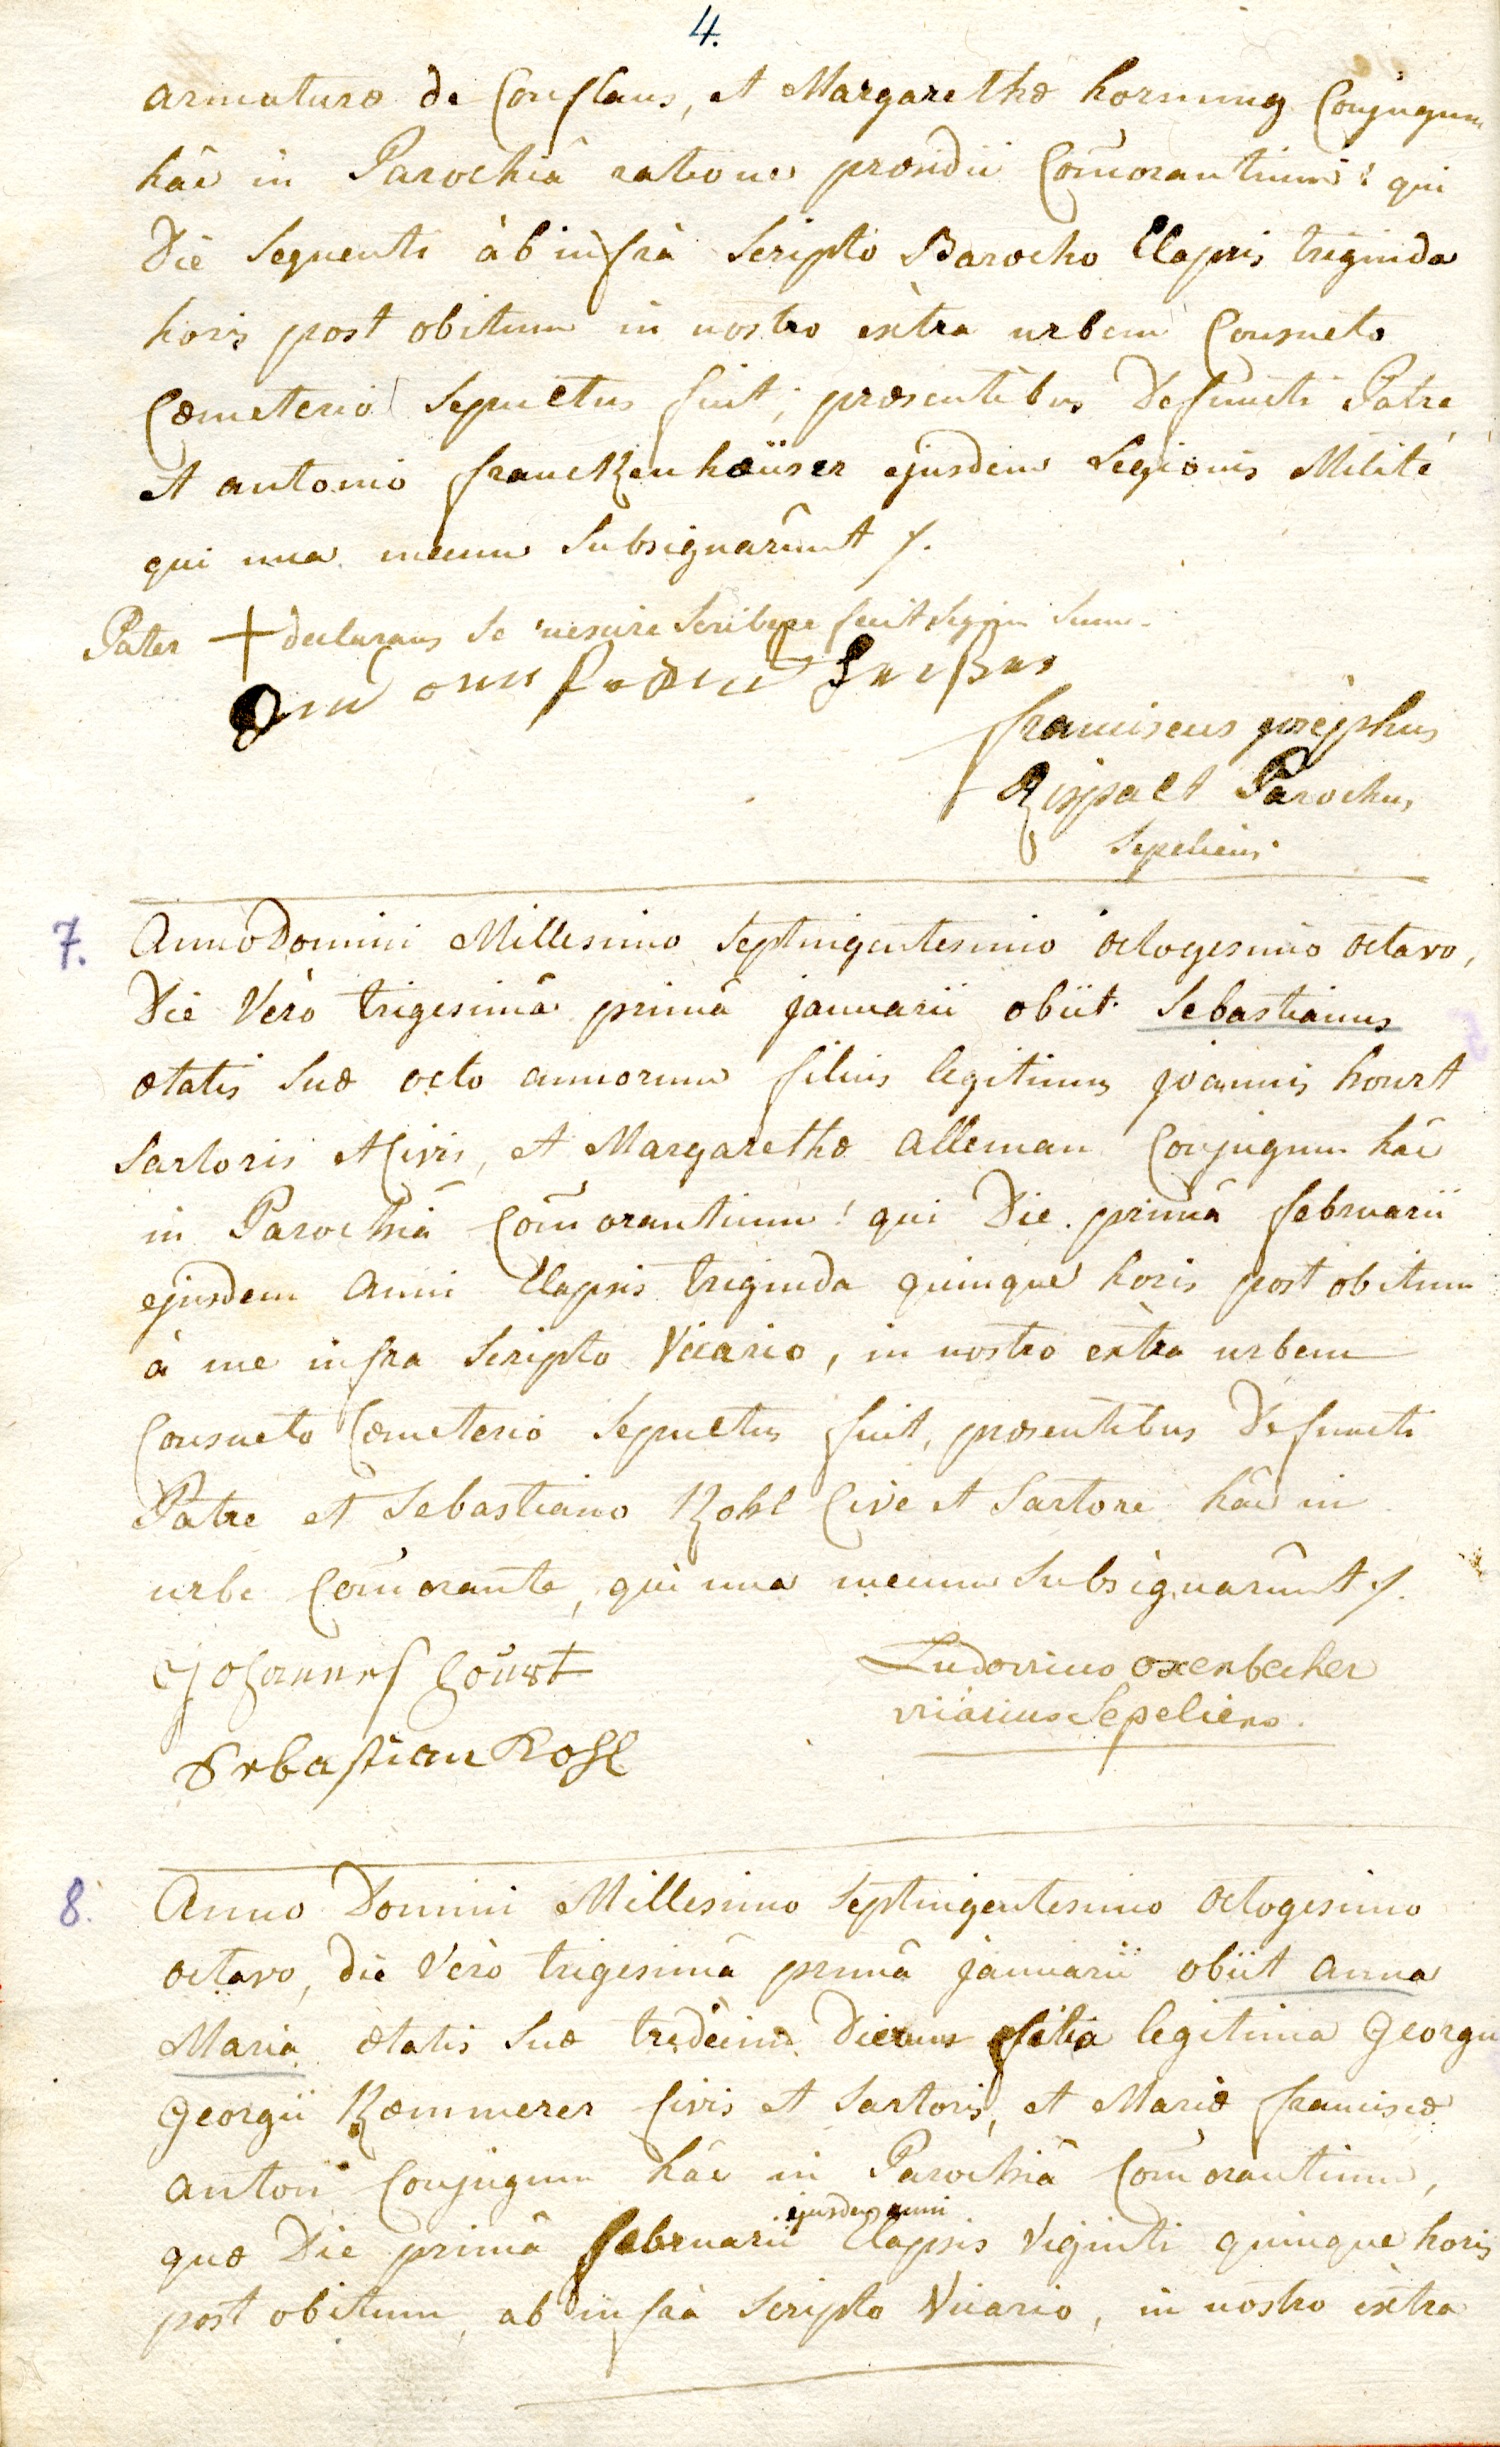 4.
armaturæ de Conflans, et Margarethæ hornung Conjugum
hâc in Parochiâ ratione præsidii Com̃orantium! qui
Die Sequenti àb infrà Scripto Parocho Elapsis triginda
horis post obitum in nostro extra urbem Consueto
Cœmeterio Sepultus fuit, præsentibus Defuncti Patre
et antonio franckenhæüser ejusdem Legionis Milite
qui una mecum Subsignarûnt /.
Pater + declarans Se nescire Scribere fecit Signum Suum.
franciscus josephus
Parochus
Sepeliens.
7. Anno Domini Millesimo Septingentesimo octogesimo octavo,
Die Verò trigesimâ primâ januarii obiit Sebastianus
ætatis Suæ octo annorum filius legitimus joannis hourt
Sartoris et Civis, et Margarethæ alleman Conjugum hâc
in Parochiâ Com̃orantium! qui Die primâ februarii
ejusdem anni Elapsis triginda quinque horis post obitum
à me infra Scripto Vicario, in nostro extra urbem
Consueto Cœmeterio Sepultus fuit, præsentibus Defuncti
Patre et Sebastiano Kohl Cive et Sartore hâc in
urbe Com̃orante, qui una mecum Subsignarûnt /.
Johannes Hourt
Ludovicus oxenbecher
vicarius Sepeliens.
Sebastian Kohl
8. Anno Domini Millesimo Septingentesimo octogesimo
octavo, die Verò trigesimâ primâ januarii obiit anna
Maria ætatis Suæ tredecim Dierum filia legitima Georgii
Georgii Kæmmerer Civis et Sartoris, et Mariæ franciscæ
antoni Conjugum hâc in Parochiâ Com̃orantium,
quæ Die primâ februarii ejusdem anni Elapsis Viginti quinque horis
post obitum, ab infrà Scripto Vicario, in nostro extra